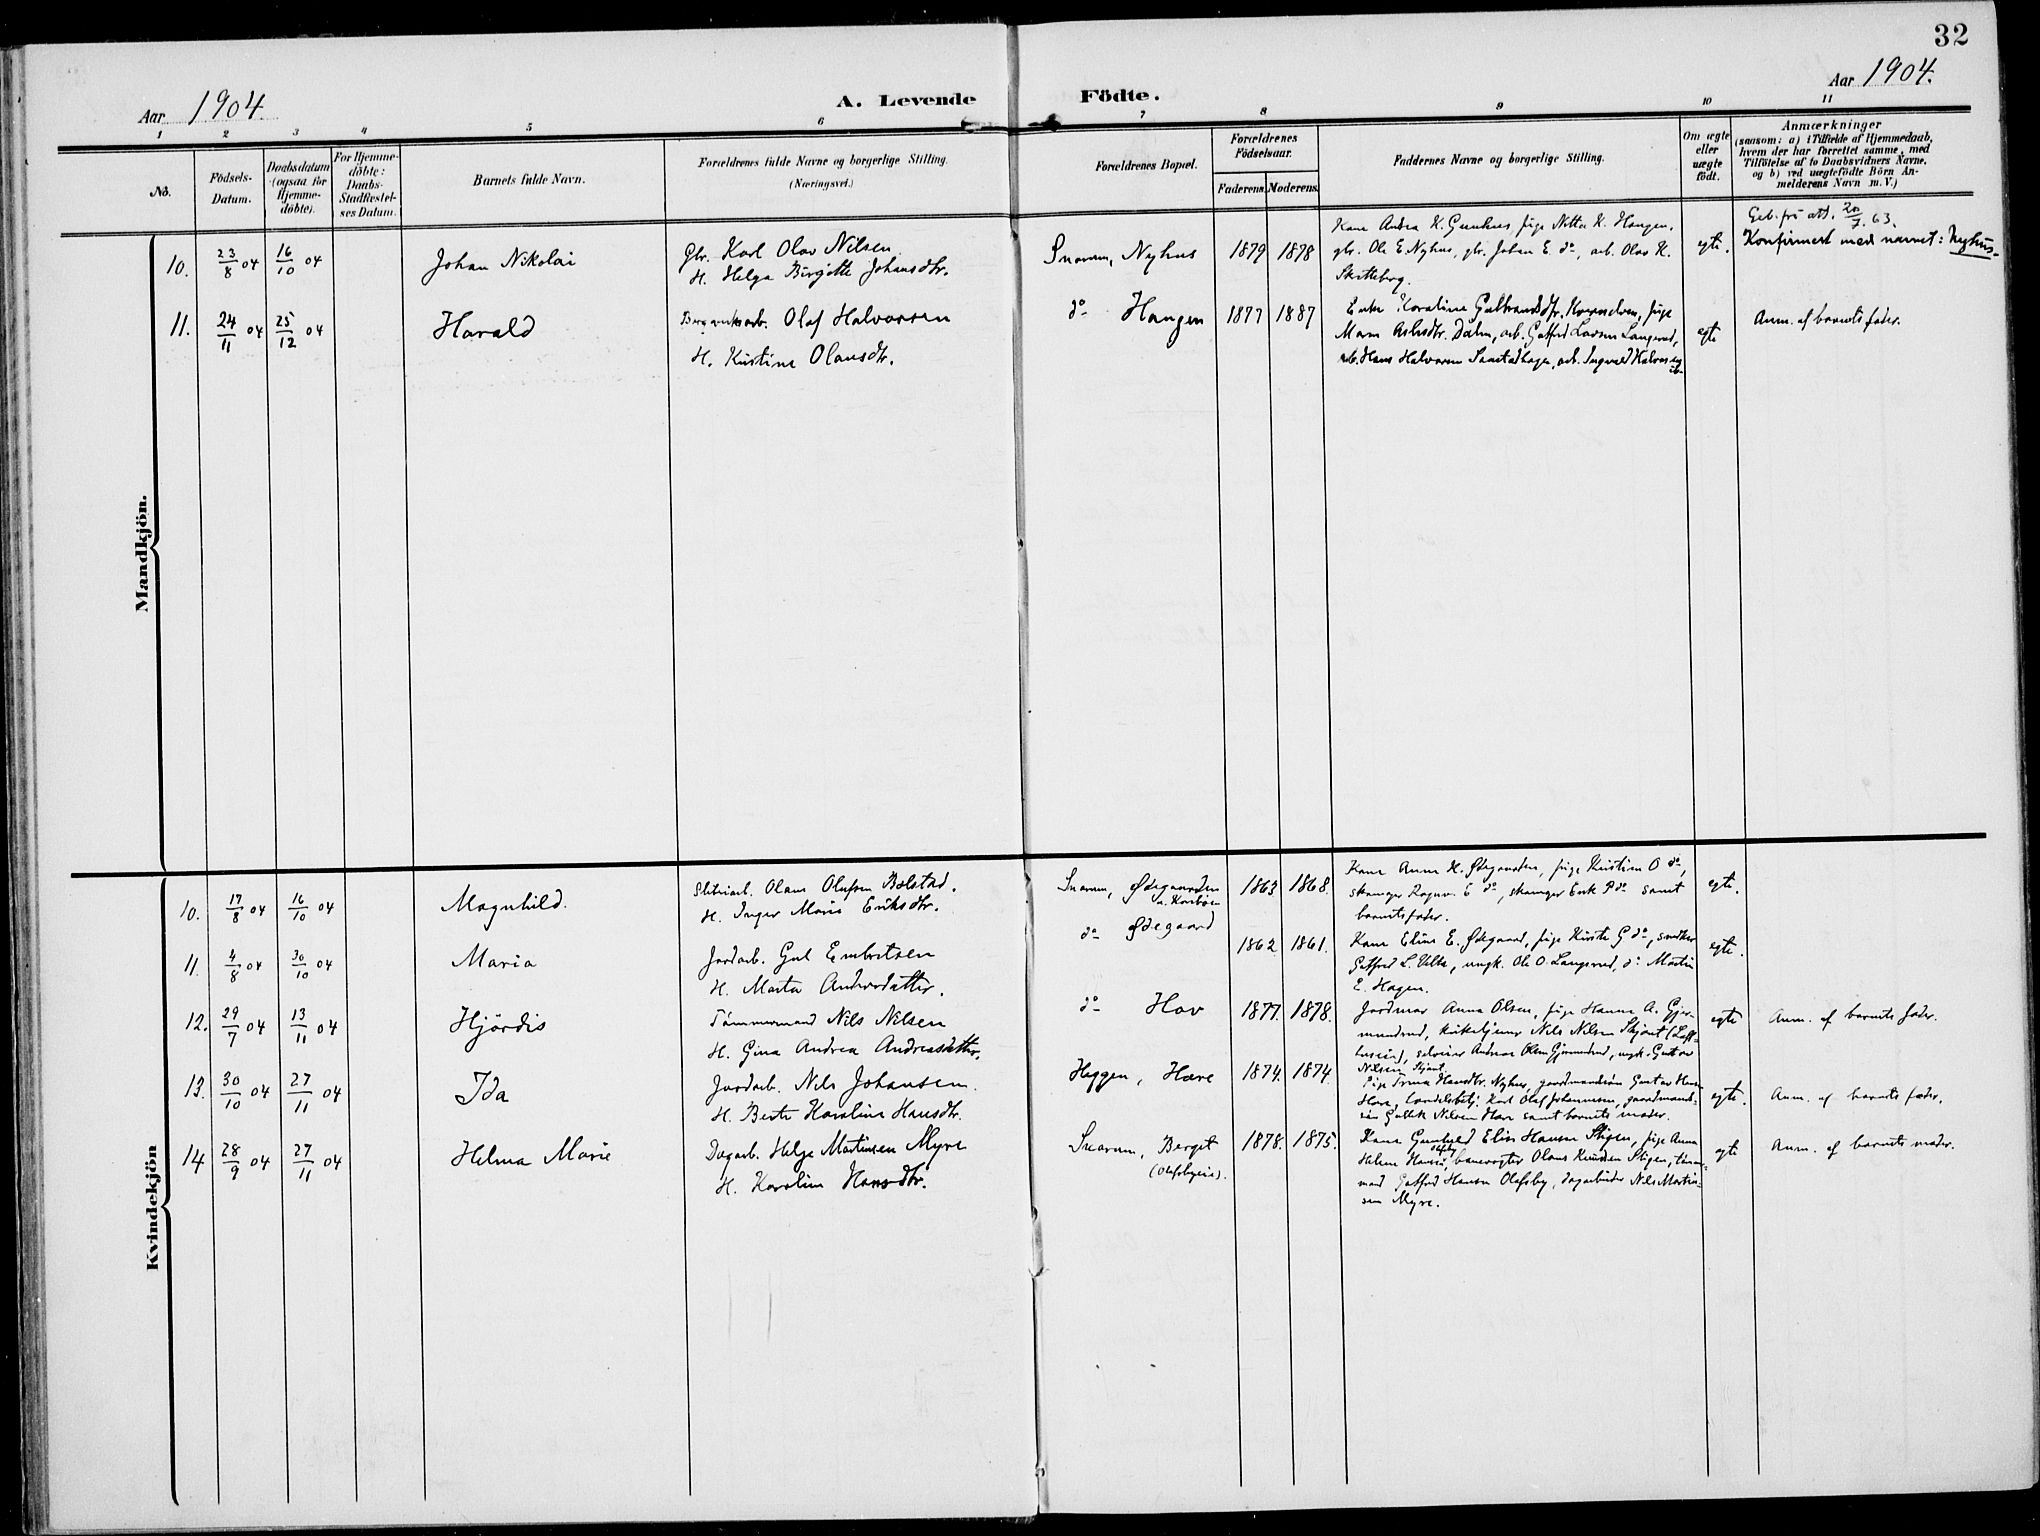 32
Aar 1904.
A. Levende Födte.
Aar 1904.
1 2 3 4 5 6 7 8 9 10 11
No.
Födsels-Datum.
Daabsdatum (ogsaa for Hjemme-döbte).
For Hjemme-döbte: Daabs-Stadfæstel-ses Datum.
Barnets fulde Navn.
Forældrenes fulde Navne og borgerlige Stilling.
(Næringsvei.)
Forældrenes Bopæl.
Forældrenes Födselsaar.
Faderens. Moderens.
Faddernes Navne og borgerlige Stilling.
Om ægte eller uægte födt.
Anmærkninger
(saasom: a) i Tilfælde af Hjemmedaab,
hvem der har forrettet samme, med
Tilföielse af to Daabsvidners Navne,
og b) ved uægtefödte Börn An-
melderens Navn m. V.)
Mandkjön.
10. 23/8 04 16/10 04 Johan Nikolai
Gbr. Karl Olav Nilsen
H. Helga Birgitte Johansdtr.
Snarum, Nyhus 1879 1878
Kone Andrea K. , pige Netta K. Haugen,
gbr. Ole E. Nyhus, gbr. Johan E. do, arb. Olav K.
Skatteberg.
egte.
Geb. fri att. 20/7. 63.
Konfirmert med navnet: Nyhus.
11. 24/11 04 25/12 04 Harald
Olaf Halvorsen
H. Kristine Olausdtr.
do Haugen 1877 1887
Enke Karoline Gulbrandsdtr. , pige
Maren Aslesdtr. Dalen, arb. Gotfred Larsen Langerud,
arb. Hans Halvorsen , arb. Ingvald Halvorsen
egte
Anm. af barnets fader.
Kvindekjön
10. 17/8 04 16/10 04 Magnhild.
Sliberiarb. Olaus Olufsen Bolstad.
H. Inger Marie Eriksdtr.
Snarum, Ødegaarden 1863 1868.
Kone Anne H. Ødegaarden, pige Kristine O do,
skomager Ragnv. E do, skomager Erik P do samt
barnets fader.
egte.
11. 4/8 04 30/10 04 Maria
Jordarb. Gul Embretsen
H. Marta Andersdatter.
do Ødegaard 1862 1861.
Kone Eline E. Ødegaard, pige Kirste G do, snedker
Gotfred L. Ulla, ungk. Ole O. Langerud, do Martin
E. Hagen.
egte.
12. 29/7 04 13/11 04 Hjördis
Tömmermand Nils Nilsen
H. Gina Andrea Andreasdatter.
do Hov 1877. 1878.
Jordmor Anna Olsen, pige Hanna A. Gjer-
mundrud, kirketjener Nils Nilsen Skjönt (Loft-
husein), selveier Andreas Olsen Gjermundrud, ungk. Gustav
Nilsen Skjönt.
egte
Anm. af barnets fader.
13. 30/10 04 27/11 04 Ida
Jordarb. Nils Johansen.
H. Berte Karoline Hansdtr.
Heggen, Hære 1874. 1874.
Pige Trina Hansdtr. Nyhus, gaardmandssön Gustav Hansen
Hære, handelsbetj. Karl Olaf Johannesen, gaardmands-
sön Gullik Nilsen Hære samt barnets moder.
egte.
Anm. af barnets fader.
14 28/9 04 27/11 04 Helma Marie
Dagarb. Helge Martinsen Myre
H. Karoline Hansdtr.
Snarum, Berget
(Olafsbyeie). 1878. 1875.
Kone Gunhild Elise Hansen Stigen, pige Anna
Helene Hansen Olafsby, banevogter Olaus Knudsen Stigen, tömmer-
mand Gotfred Hansen Olafsby, dagarbeider Nils Martin-
sen Myre.
egte
Anm. af barnets moder.